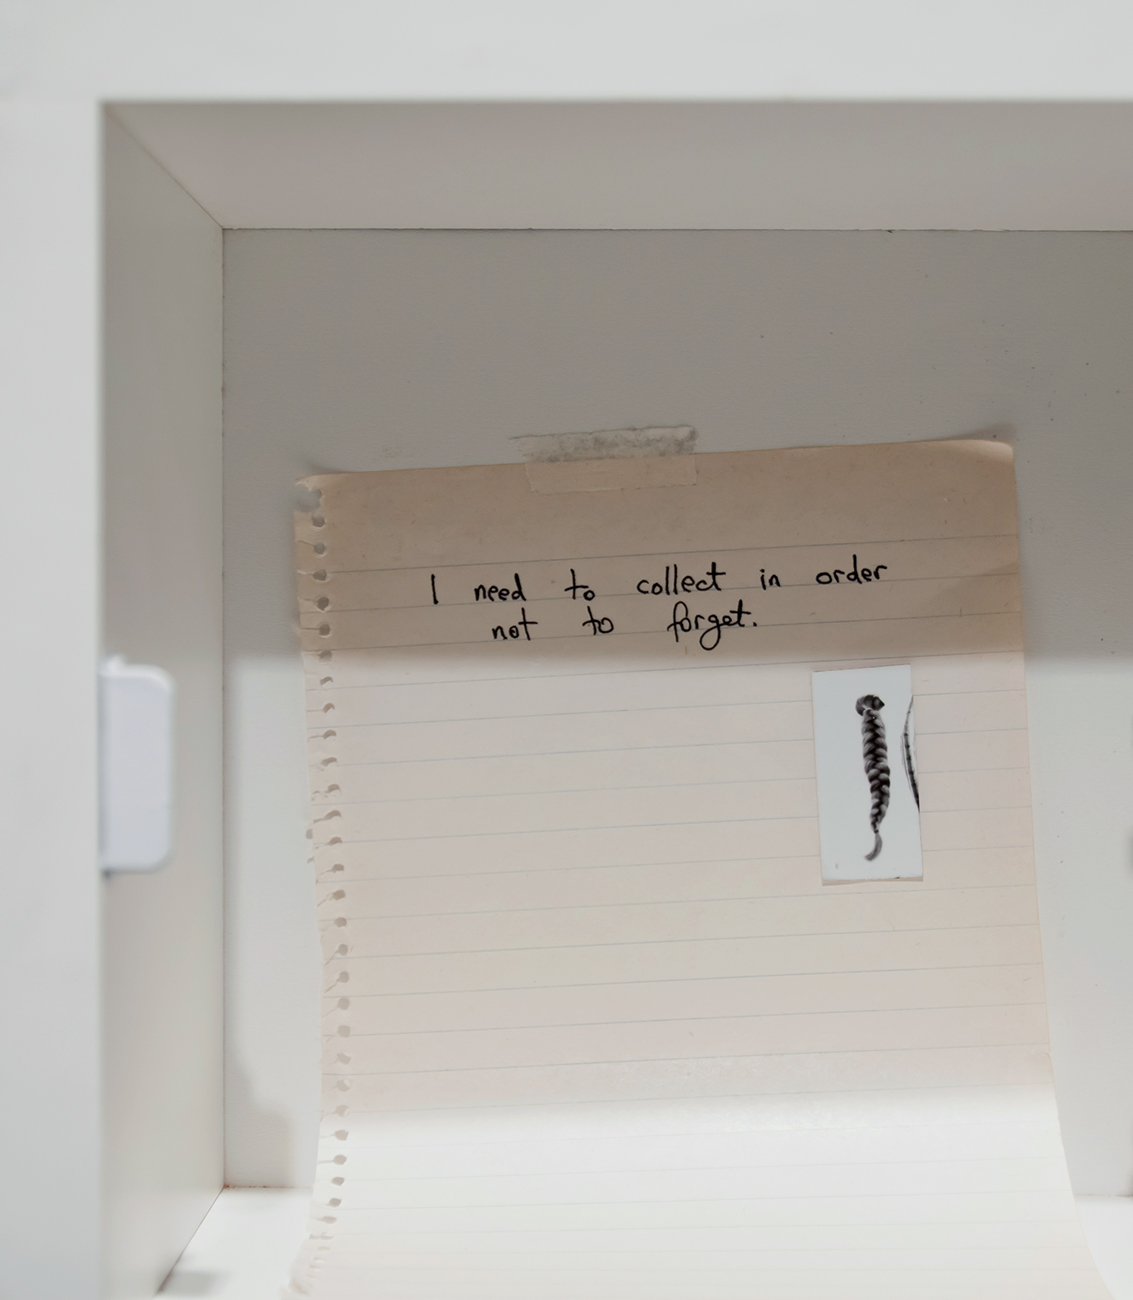 I need to collect in order
not to forget.